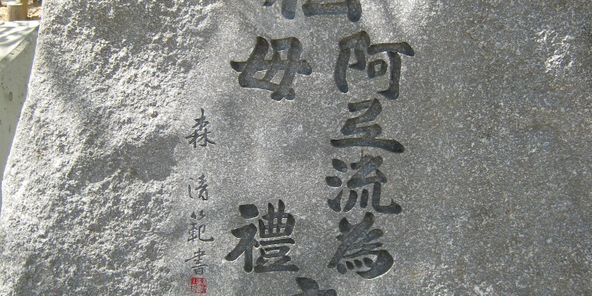 阿弖流為
母禮
森清範書